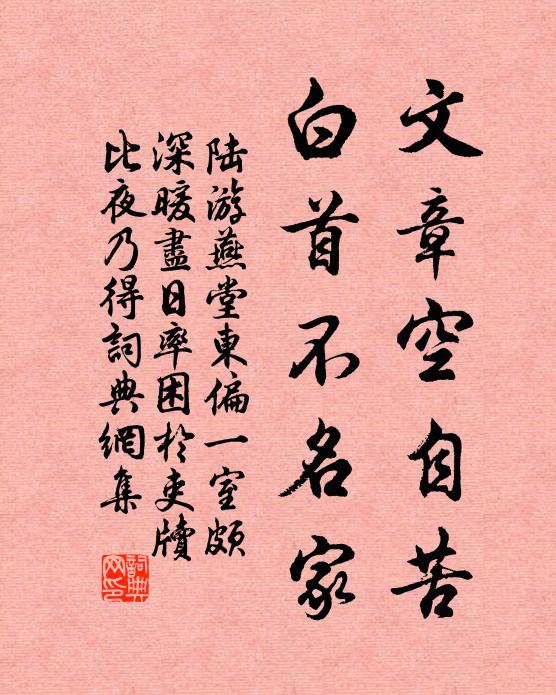 文章空自苦
白首不名家
陆游燕堂東偏一室頗
深暖盡日率困於吏牘
比夜乃得詞典網集
詞典网印